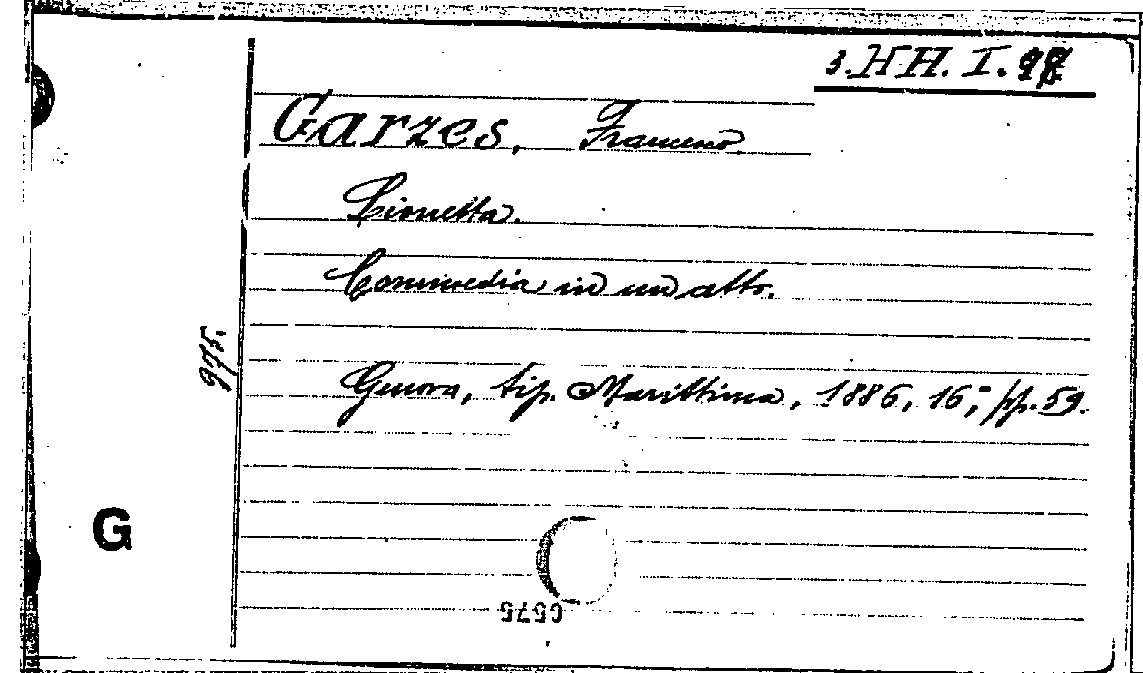 3. HH. I.
Garzes, Francesco
Commedia in un atto.
975.
Genova, tip. Marittima, 1886, 16,° pp. 59.
G